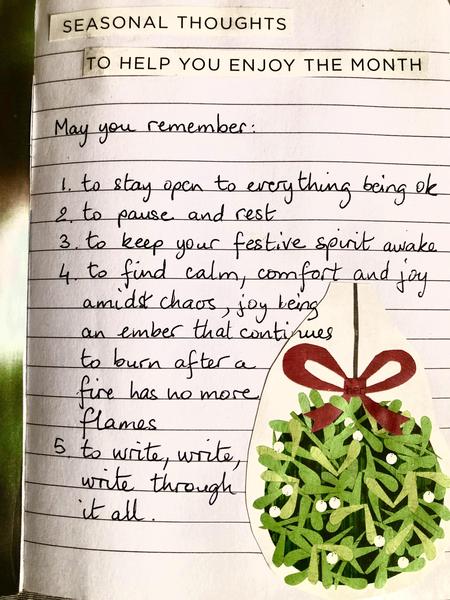 SEASONAL THOUGHTS
TO HELP YOU ENJOY THE MONTH
May you remember:
1. to stay open to everything being ok
2. to pause and rest
3. to keep your festive spirit awake
4. to find calm, comfort and joy
amidst chaos, joy being
an ember that continues
to burn after a
fire has no more
flames
5 to write, write,
write through
it all.